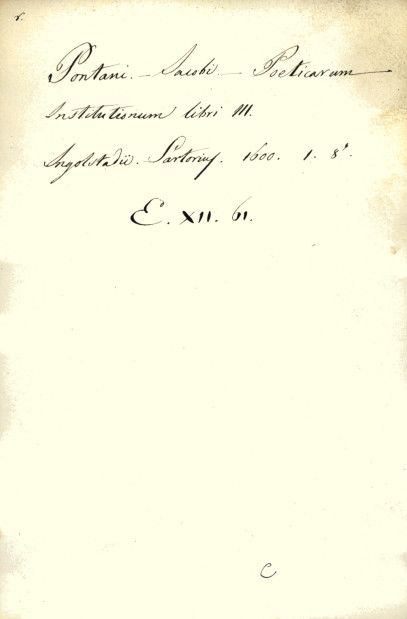 r.
Pontani. — Jacobi — Poeticarum —
Institutionum libri III.
Ingolstadii. Sartorius. 1600. 1. 8°.
E. XII. 61.
C